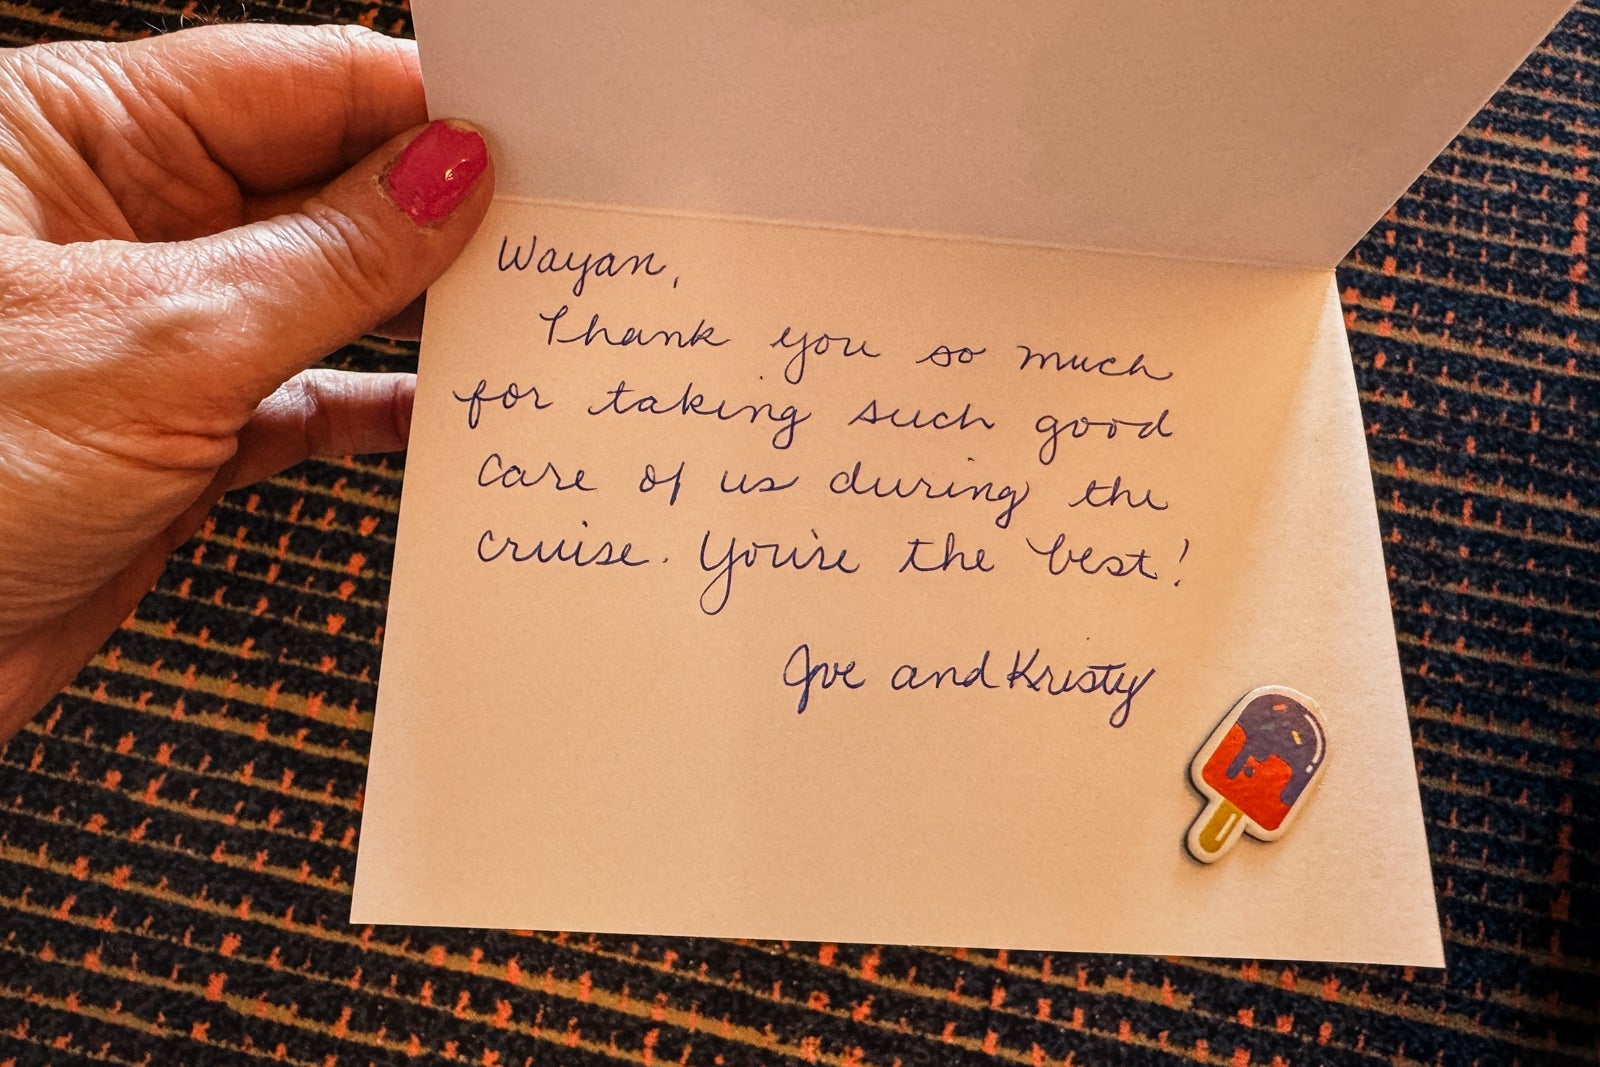 Wayan,
Thank you so much
for taking such good
care of us during the
cruise. You're the best!
Joe and Kristy